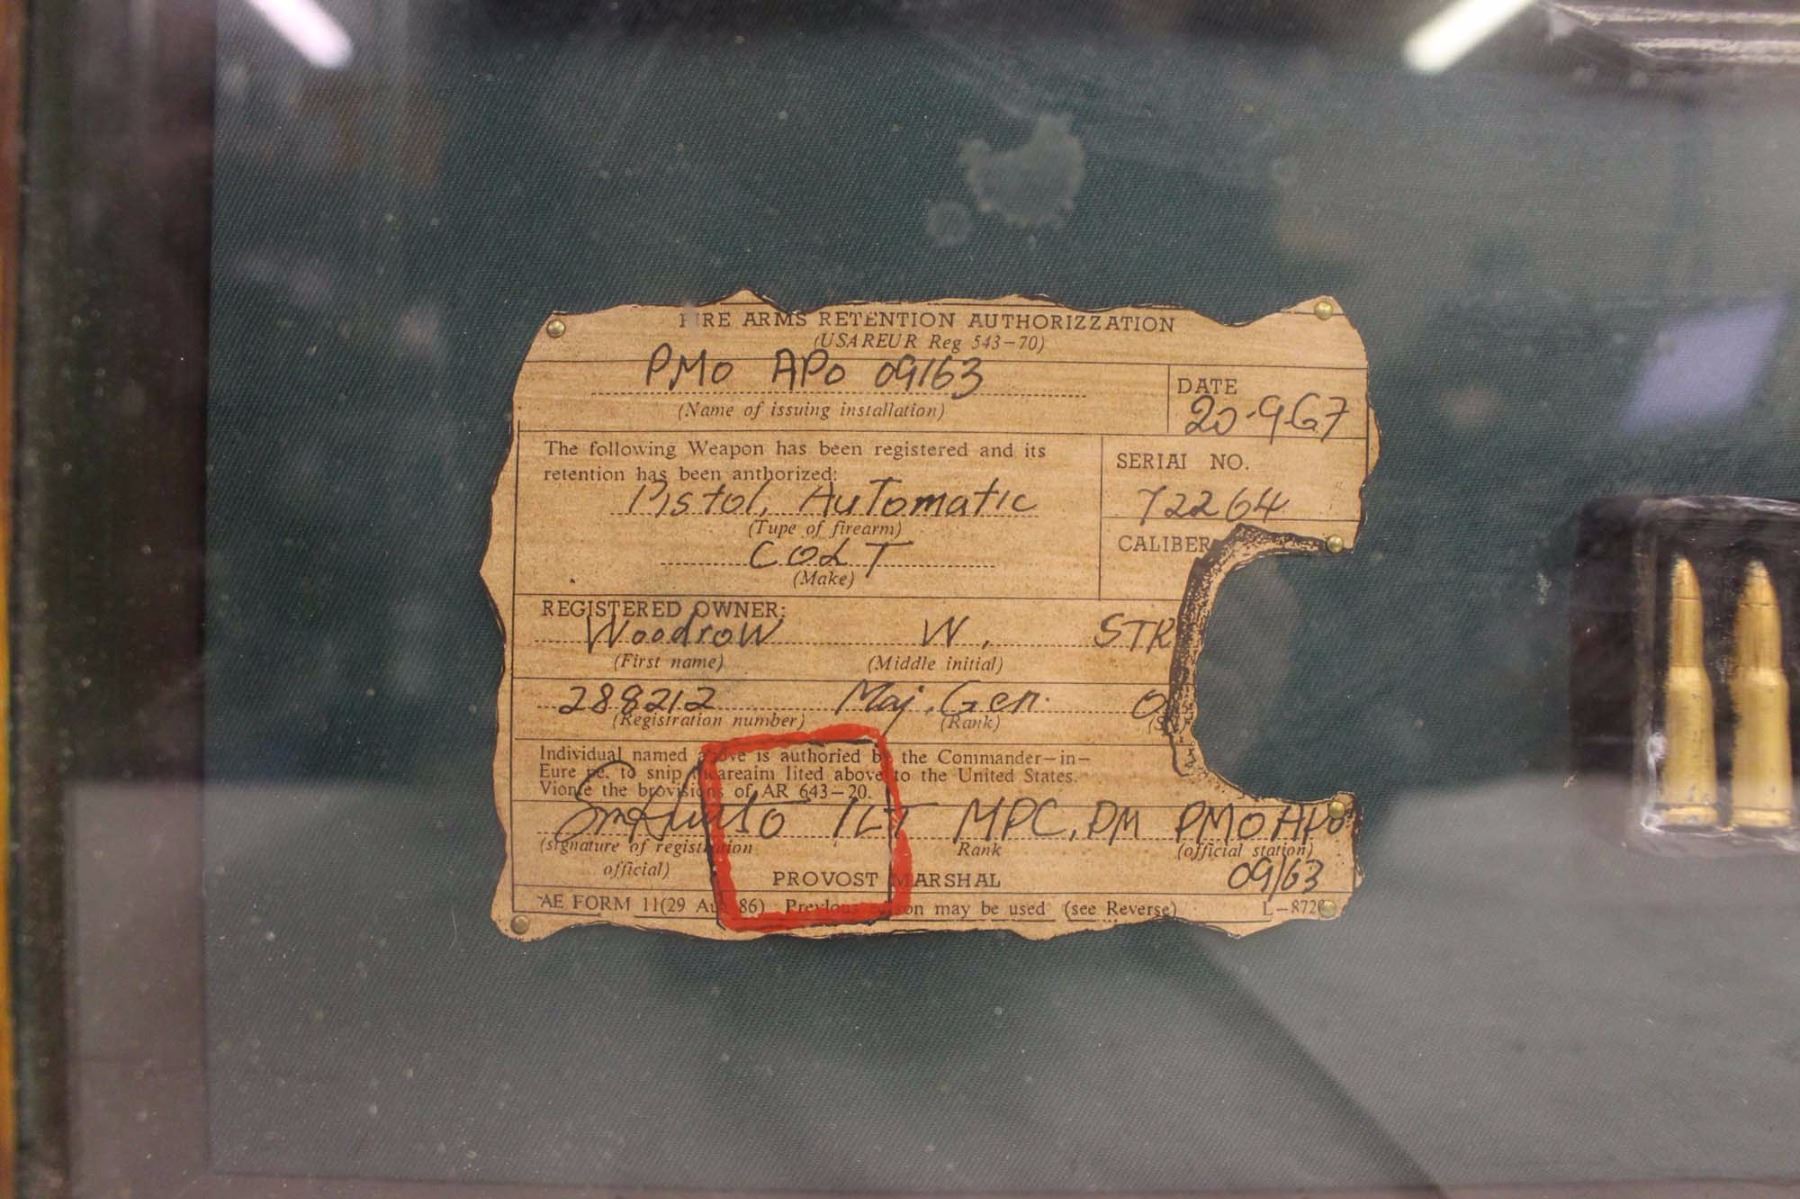 FIRE ARMS RETENTION AUTHORIZZATION
(USAREUR Reg 543-70)
PMO APO 09163
(Name of issuing installation)
DATE
20-9-67
The following Weapon has been registered and its
retention has been anthorized:
Pistol, Automatic
(Tupe of firearm)
COLT
(Make)
SERIAI NO.
72264
CALIBER
REGISTERED OWNER:
Woodrow W. STR
(First name) (Middle initial)
288212 Maj. Gen. O
(Registration number) (Rank) (S
Individual named above is authoried by the Commander-in-
Eure pe. to snip lited above to the United States.
Vionse the brovisions of AR 643-20.
1LT MPC, DM PMO APO
(signature of registration Rank (official station)
official) 09163
PROVOST MARSHAL
AE FORM 11(29 Aug 86) Previous may be used (see Reverse) L-872